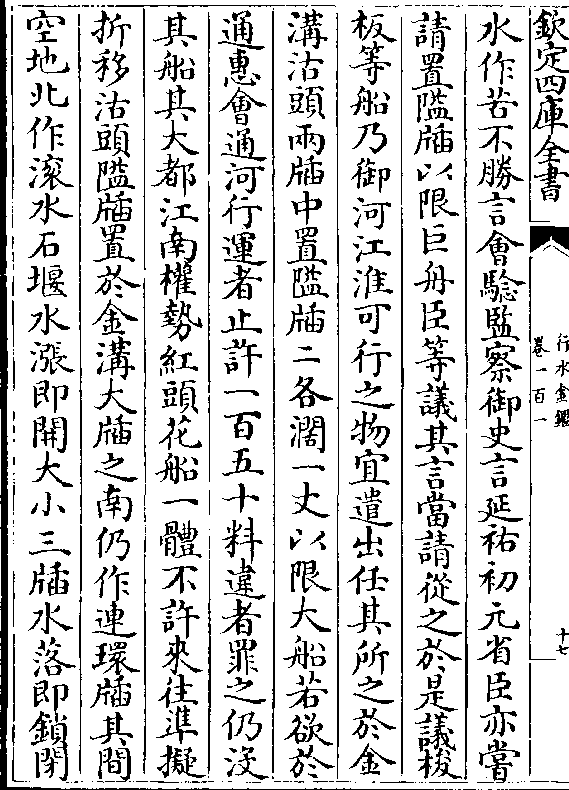 欽定四庫全書
行水金鑑
卷一百一
十七
水作若不勝言會驗監察御史言延祐初元省臣亦嘗
請置隘牐以限巨舟臣等議其言當請從之於是議梭
板等船乃御河江淮可行之物宜遣出任其所之於金
溝沽頭兩牐中置隘牐二各濶一丈以限大船若欲於
通惠會通河行運者止許一百五十料違者罪之仍没
其船其大都江南權勢紅頭花船一體不許來往準擬
折移沽頭隘牐置於金溝大牐之南仍作連環牐其間
空地北作滚水石堰水漲即開大小三牐水落即鎖閉